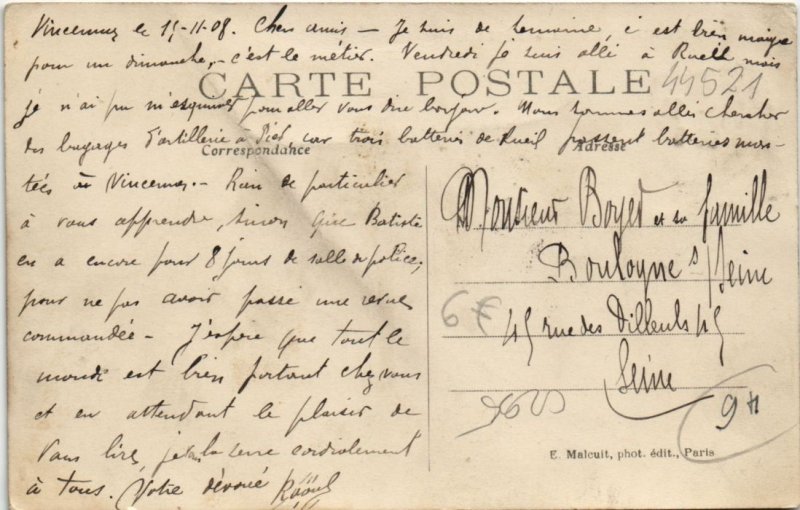 Vincennes le 15-11-08. Chers amis - Je suis de semaine, c'est bien maigre
pour un dimanche, - c'est le métier. Vendredi je suis allé à Rueil mais
CARTE POSTALE
44521
je n'ai pu m'esquiver pour aller vous dire bonjour. Nous sommes allés chercher
des bagages d'artillerie à pied, car trois batteries de Rueil passent batteries mon-
Correspondance
Adresse
tées à Vincennes. - Rien de particulier
à vous apprendre, sinon que Batiste
en a encore pour 8 jours de salle de police,
pour ne pas avoir passé une revue
commandée - J'espère que tout le
monde est bien portant chez vous
et en attendant le plaisir de
vous lire, je la serre cordialement
à tous. Votre dévoué Raoul
Monsieur Boyet et sa famille
Boulogne s/Seine
45 rue des Tilleuls 45
Seine
6 €
9
E. Malcuit, phot. édit., Paris